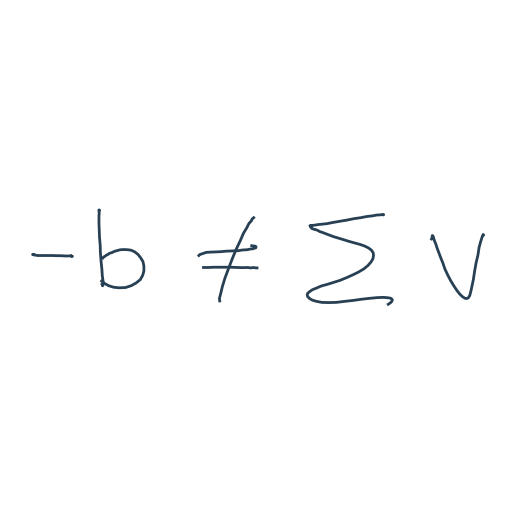 -b ≠ ∑ v